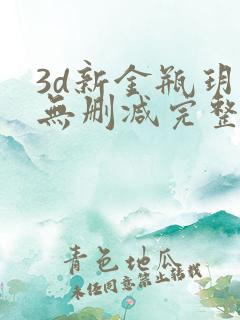 3d新金瓶玥
無删减完整
青色地瓜
未任同意禁止转载